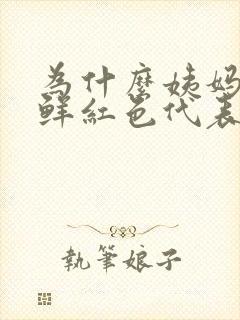 為什麼姨媽
鮮紅色代表
執筆娘子